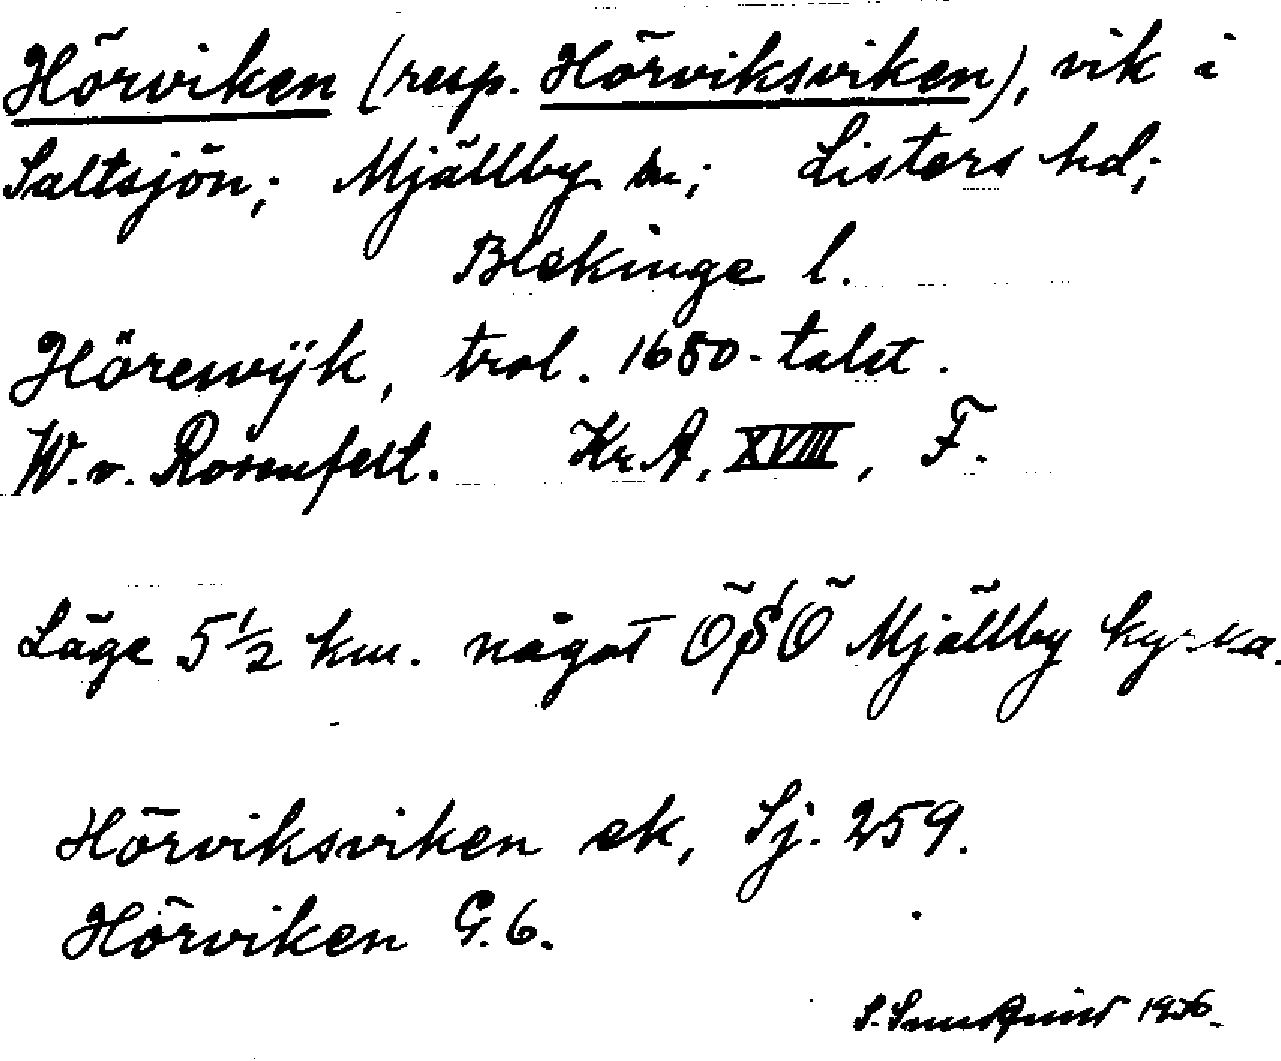 Hörviken (resp. Hörviksviken), vik i
Saltsjön; Mjällby sn; Listers hd;
Blekinge l.
Hörewijk, trol. 1680-talet.
W. v. Rosenfelt. Kr A, XVIII, F.
Läge 5 1/2 km. något ÖSÖ Mjällby kyrka.
Hörviksviken ek, Sj. 259.
Hörviken G. 6.
S. 1956.